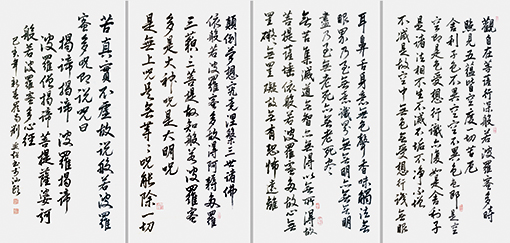 觀自在菩薩行深般若波羅蜜多時
照見五蘊皆空度一切苦厄
舍利子色不異空空不異色色即是空
空即是色受想行識亦復如是舍利子
是諸法空相不生不滅不垢不淨不增
不減是故空中無色無受想行識無眼
耳鼻舌身意無色聲香味觸法無
眼界乃至無意識界無無明亦無無明
盡乃至無老死亦無老死盡
無苦集滅道無智亦無得以無所得故
菩提薩埵依般若波羅蜜多故心無
罣礙無罣礙故無有恐怖遠離
顛倒夢想究竟涅槃三世諸佛
依般若波羅蜜多故得阿耨多羅
三藐三菩提故知般若波羅蜜
多是大神呪是大明呪
是無上呪是無等等呪能除一切
苦真實不虛故說般若波羅
蜜多呪即說呪曰
揭諦揭諦 波羅揭諦
波羅僧揭諦菩提薩婆訶
般若波羅蜜多心經
己亥年